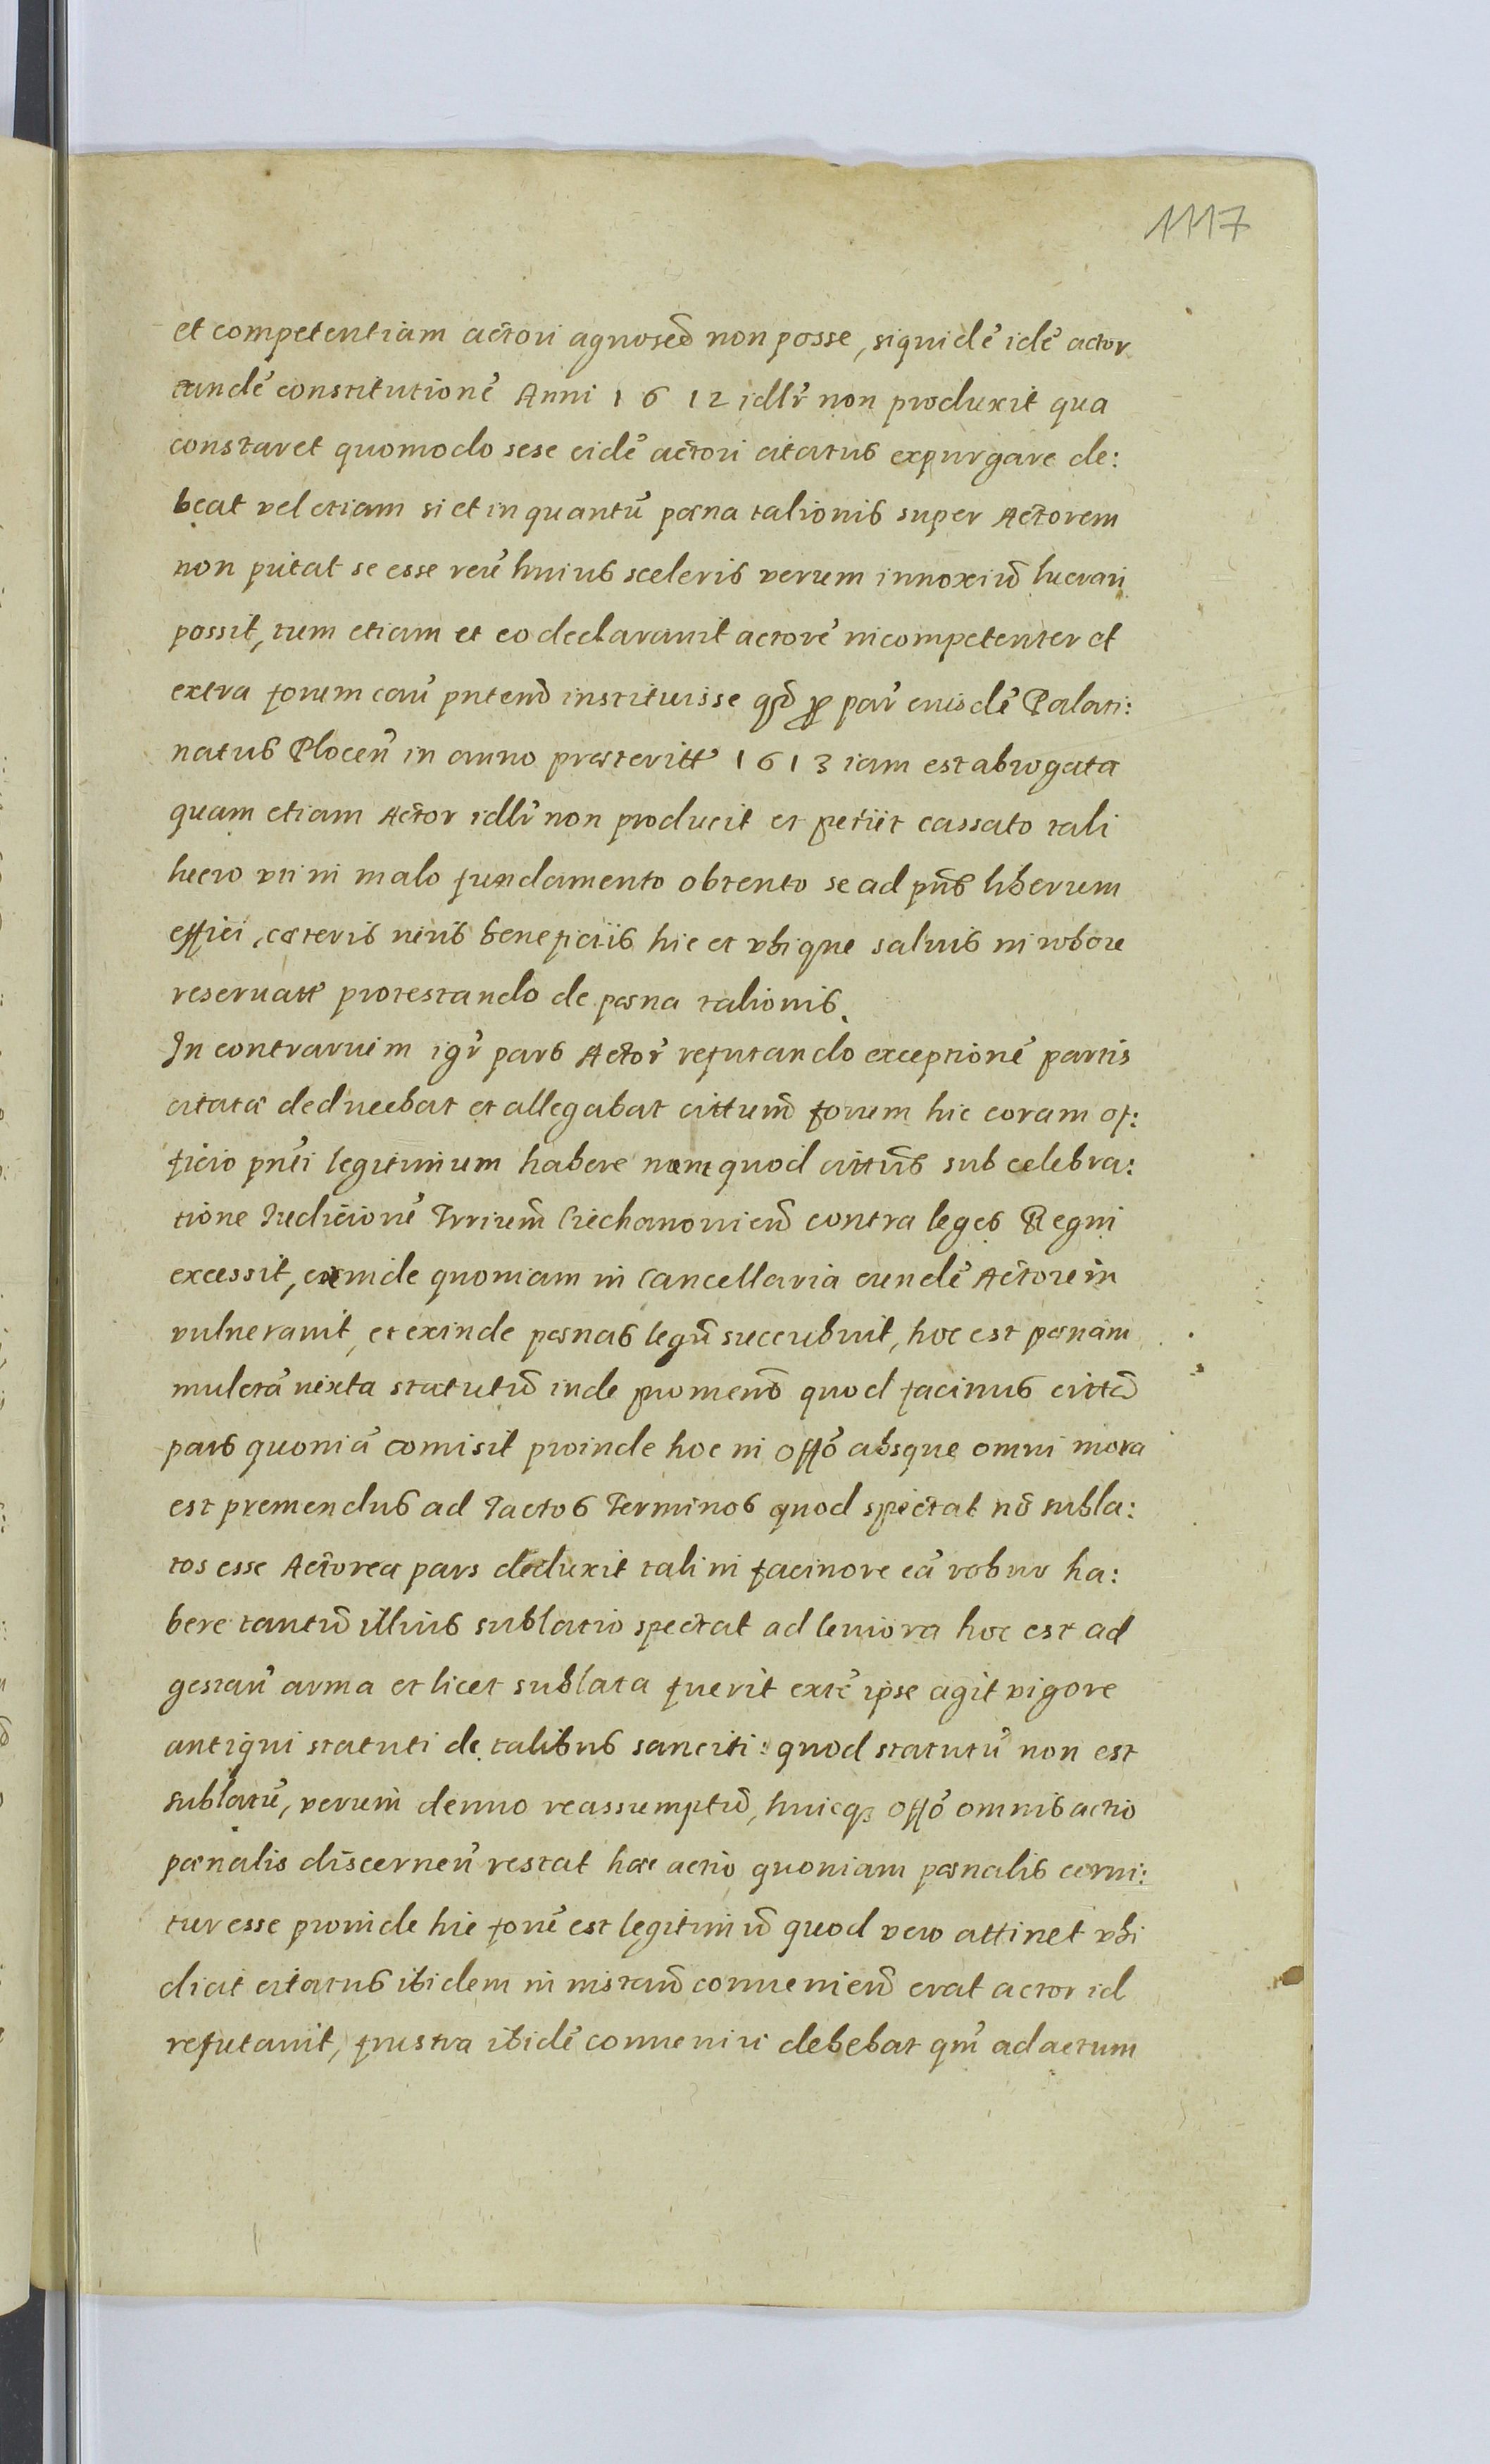 1117
et competentiam actori agnoscẽ non posse, siquidẽ idẽ actor
eandẽ constitutionẽ Anni 1612 idlr̃ non produxit qua
constaret quomodo sese eidẽ actori citatus expurgare de:
beat vel etiam si et in quantũ pœna talionis super Actorem
non putat se esse reũ huius sceleris verum innoxiũ lucrari
possit, tum etiam et eo declarauit actorẽ incompetenter et
extra forum cau͂ pntem̃ instituisse qd̃ ꝓ par̃ eiusdẽ Palati:
natus Plocen͂ in anno præteritt̃ 1613 iam est abrogata
quam etiam Actor idlr̃ non producit et petiit cassato tali
lucro uti in malo fundamento obtento se ad pñs liberum
effici, cæteris iuris beneficiis hic et vbique saluis in robore
reseruatt̃ protestando de pœna talionis.
In contrarium igr̃ pars Actor̃ refutando exceptionẽ partis
citatæ deducebat et allegabat cittum̃ forum hic coram of:
ficio pñti legitimum habere nam quod cittũs sub celebra:
tione Iudiciorũ Trrium̃ Ciechanouien͂ contra leges Regni
excessit, exinde quoniam in Cancellaria eundẽ Actorem
vulnerauit, et exinde pœnas legũ succubuit, hoc est pœnam
mulctã iuxta statutũ inde promen͂ quod facinus citta͂
pars quoniã comisit proinde hoc in offõ absque omni mora
est premendus ad Tactos Terminos quod spectat nõ subla:
tos esse Actorea pars deduxit tali in facinore eã robur ha:
bere tantũ illius sublatio spectat ad leuiora hoc est ad
gestan͂ arma et licet sublata fuerit extẽ ipse agit vigore
antiqui statuti de talibus sanciti: quod statutũ non est
sublatũ, verum denuo reassumptũ, huicqꝫ offõ omnis actio
pœnalis discernen͂ restat hæc actio quoniam pœnalis cerni:
tur esse proinde hic forũ est legitimũ quod vero attinet vbi
dicit citatus ibidem in instan͂ conuenien͂ erat actor id
refutauit, frustra ibidẽ conueniri debebat qm̃ ad actum